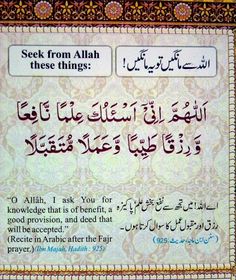 Seek from Allah
these things:
اللہ سے مانگیں تو یہ مانگیں!
اَللّٰهُمَّ اِنِّيْ اَسْئَلُكَ عِلْمًا نَّافِعًا
وَّرِزْقًا طَيِّبًا وَّعَمَلًا مُّتَقَبَّلًا
“O Allâh, I ask You for
knowledge that is of benefit, a
good provision, and deed that
will be accepted.”
(Recite in Arabic after the Fajr
prayer.) (Ibn Majah, Hadith : 925)
اے اللہ! میں تجھ سے نفع بخش علم، پاکیزہ
رزق اور مقبول عمل کا سوال کرتا ہوں۔
(سنن ابن ماجہ، حدیث: 925)